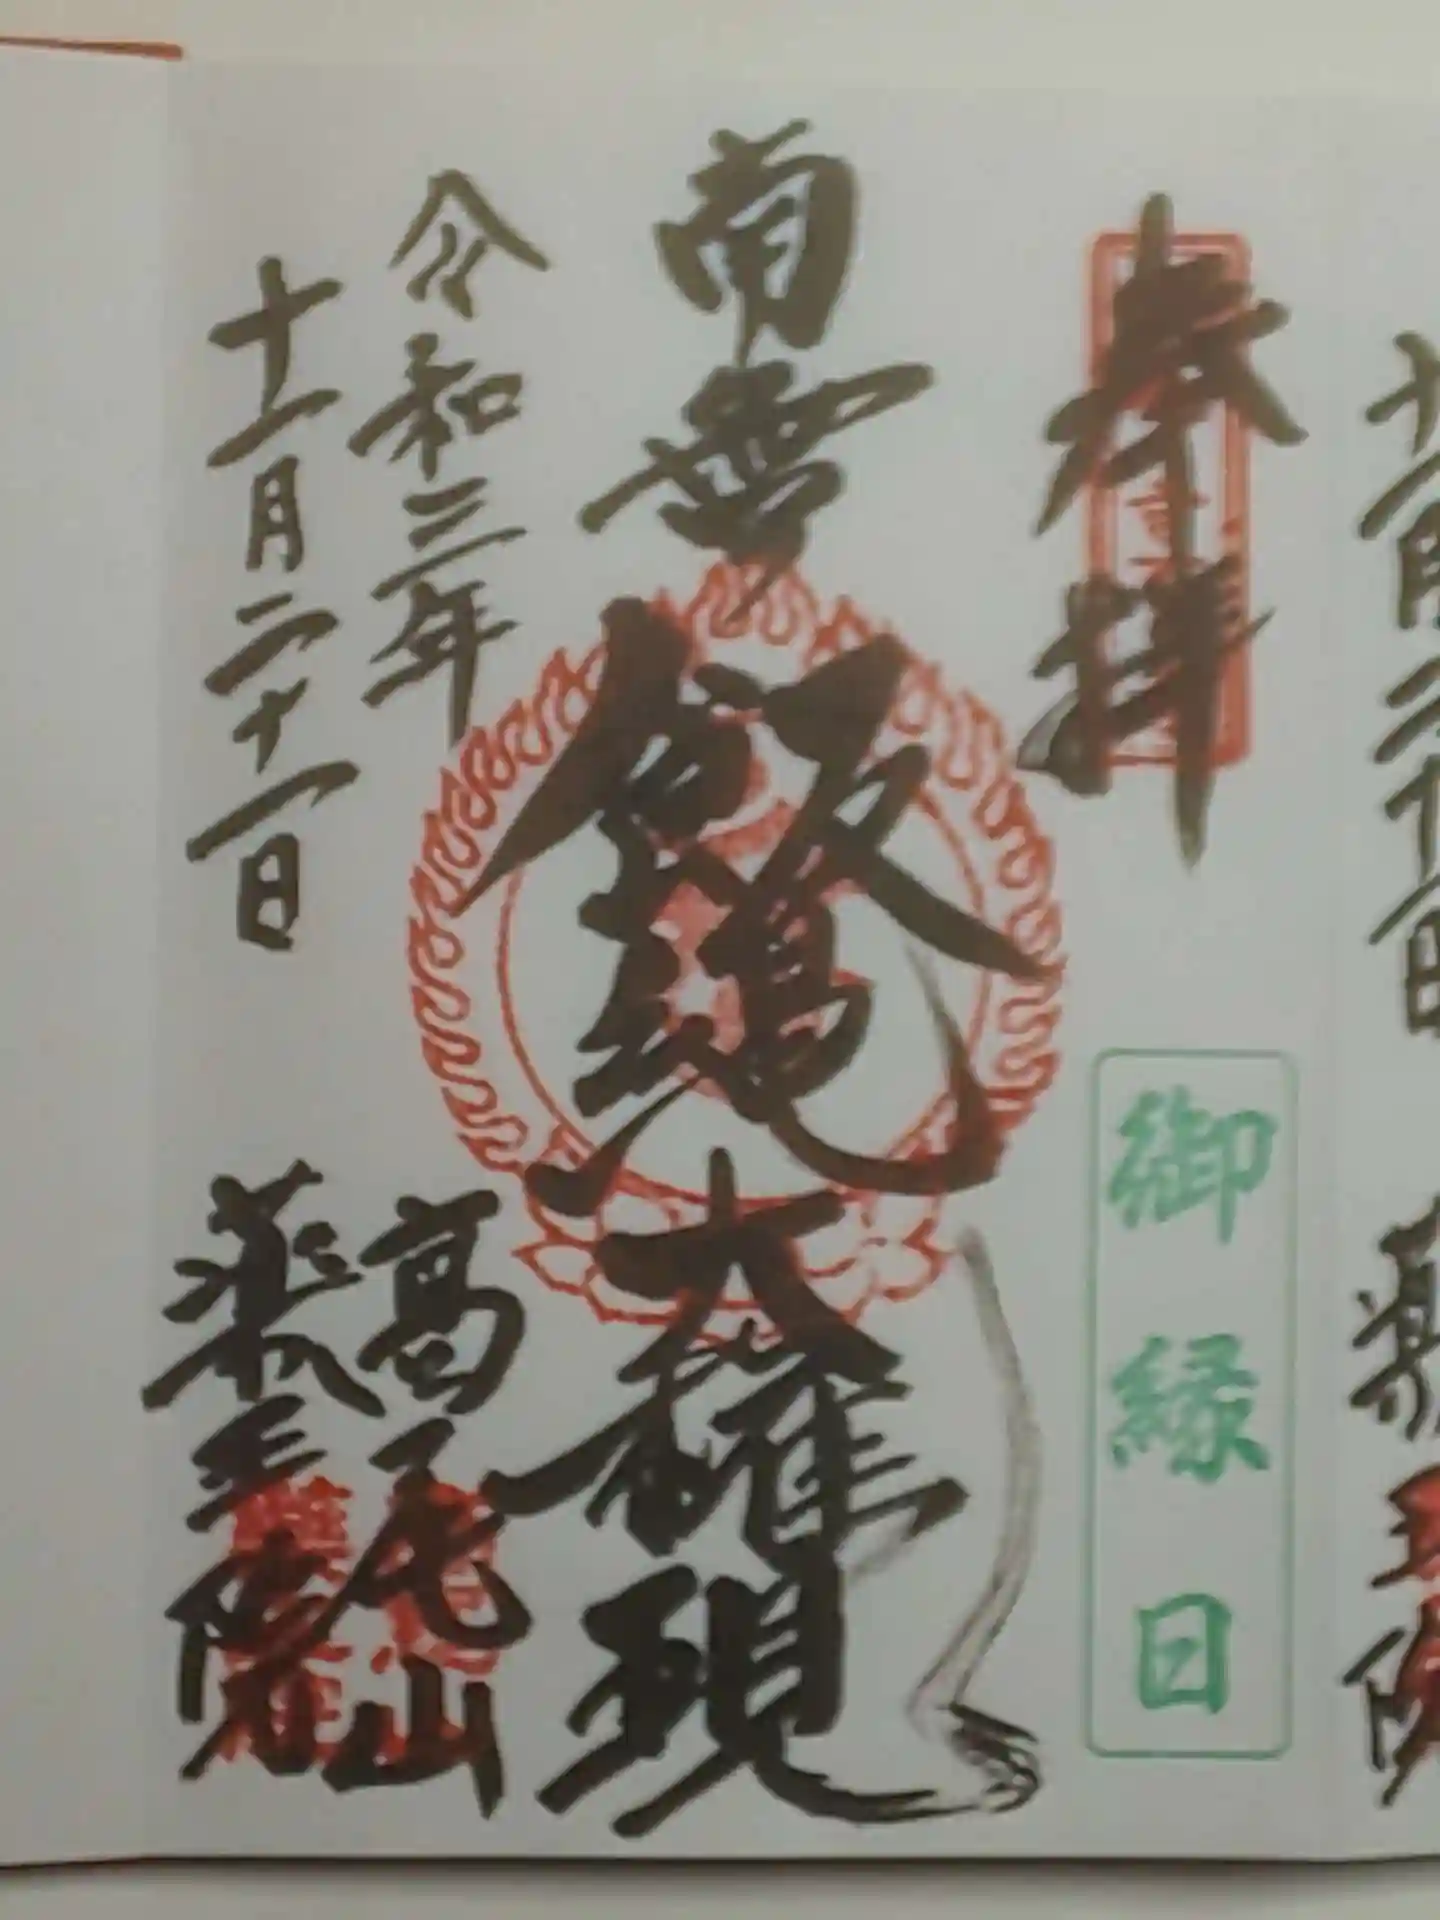 奉拝
御縁日
南無飯縄大権現
令和三年
十一月二十一日
高尾山
薬王院